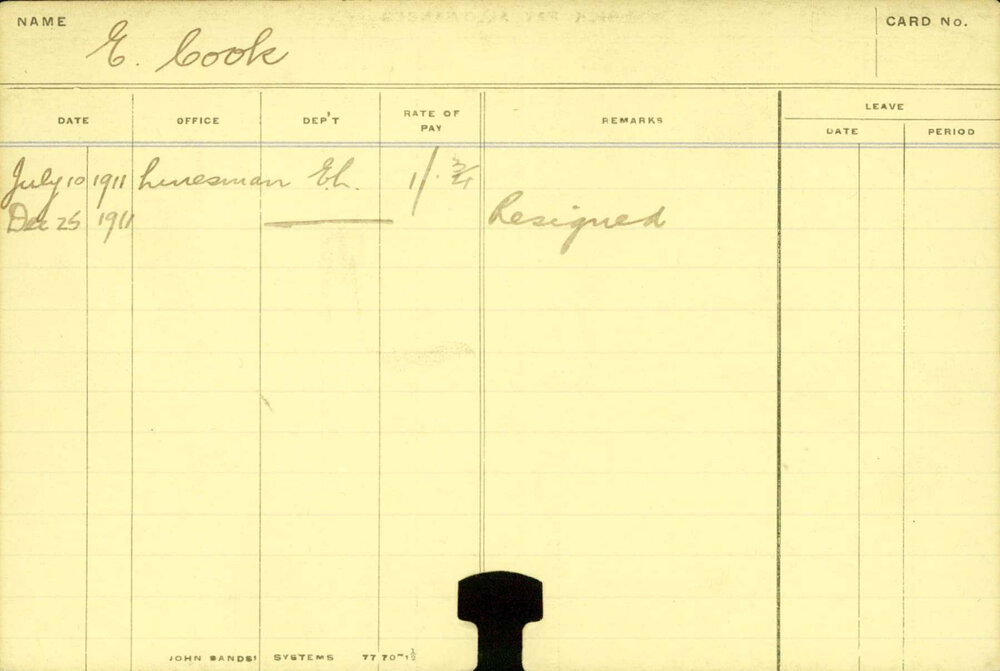 NAME E. Cook CARD No.
DATE OFFICE DEP'T RATE OF PAY REMARKS LEAVE
DATE PERIOD
July 10 1911 Linesman E.L. 1/. 3/4
Dec 25 1911 Resigned
JOHN SANDS' SYSTEMS 77 70